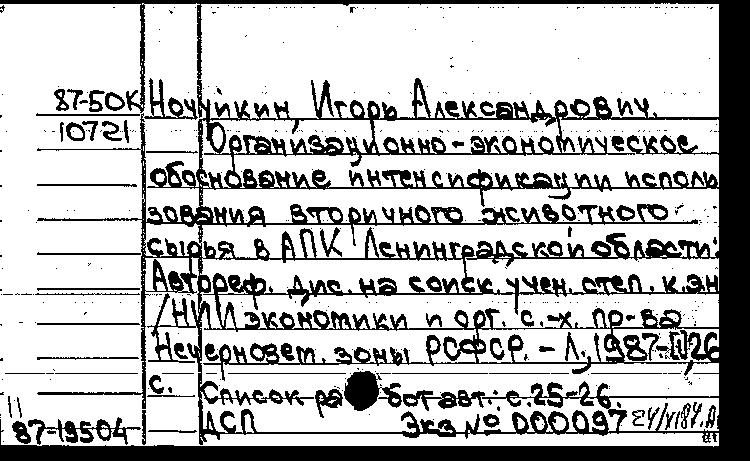 87-50К Ночуйкин, Игорь Александрович.
10721 Организационно-экономическое
обоснование интенсификации исполь
зования вторичного животного
сырья в АПК Ленинградской области:
Автореф. дис. на соиск. учен. степ. к.эн
/НИИ экономики и орг. с.-х. пр-ва
Нечернозем. зоны РСФСР. - Л., 1987-[1],26
с. Список работ авт.: с.25-26.
87-19504 ДСП Экз № 000097